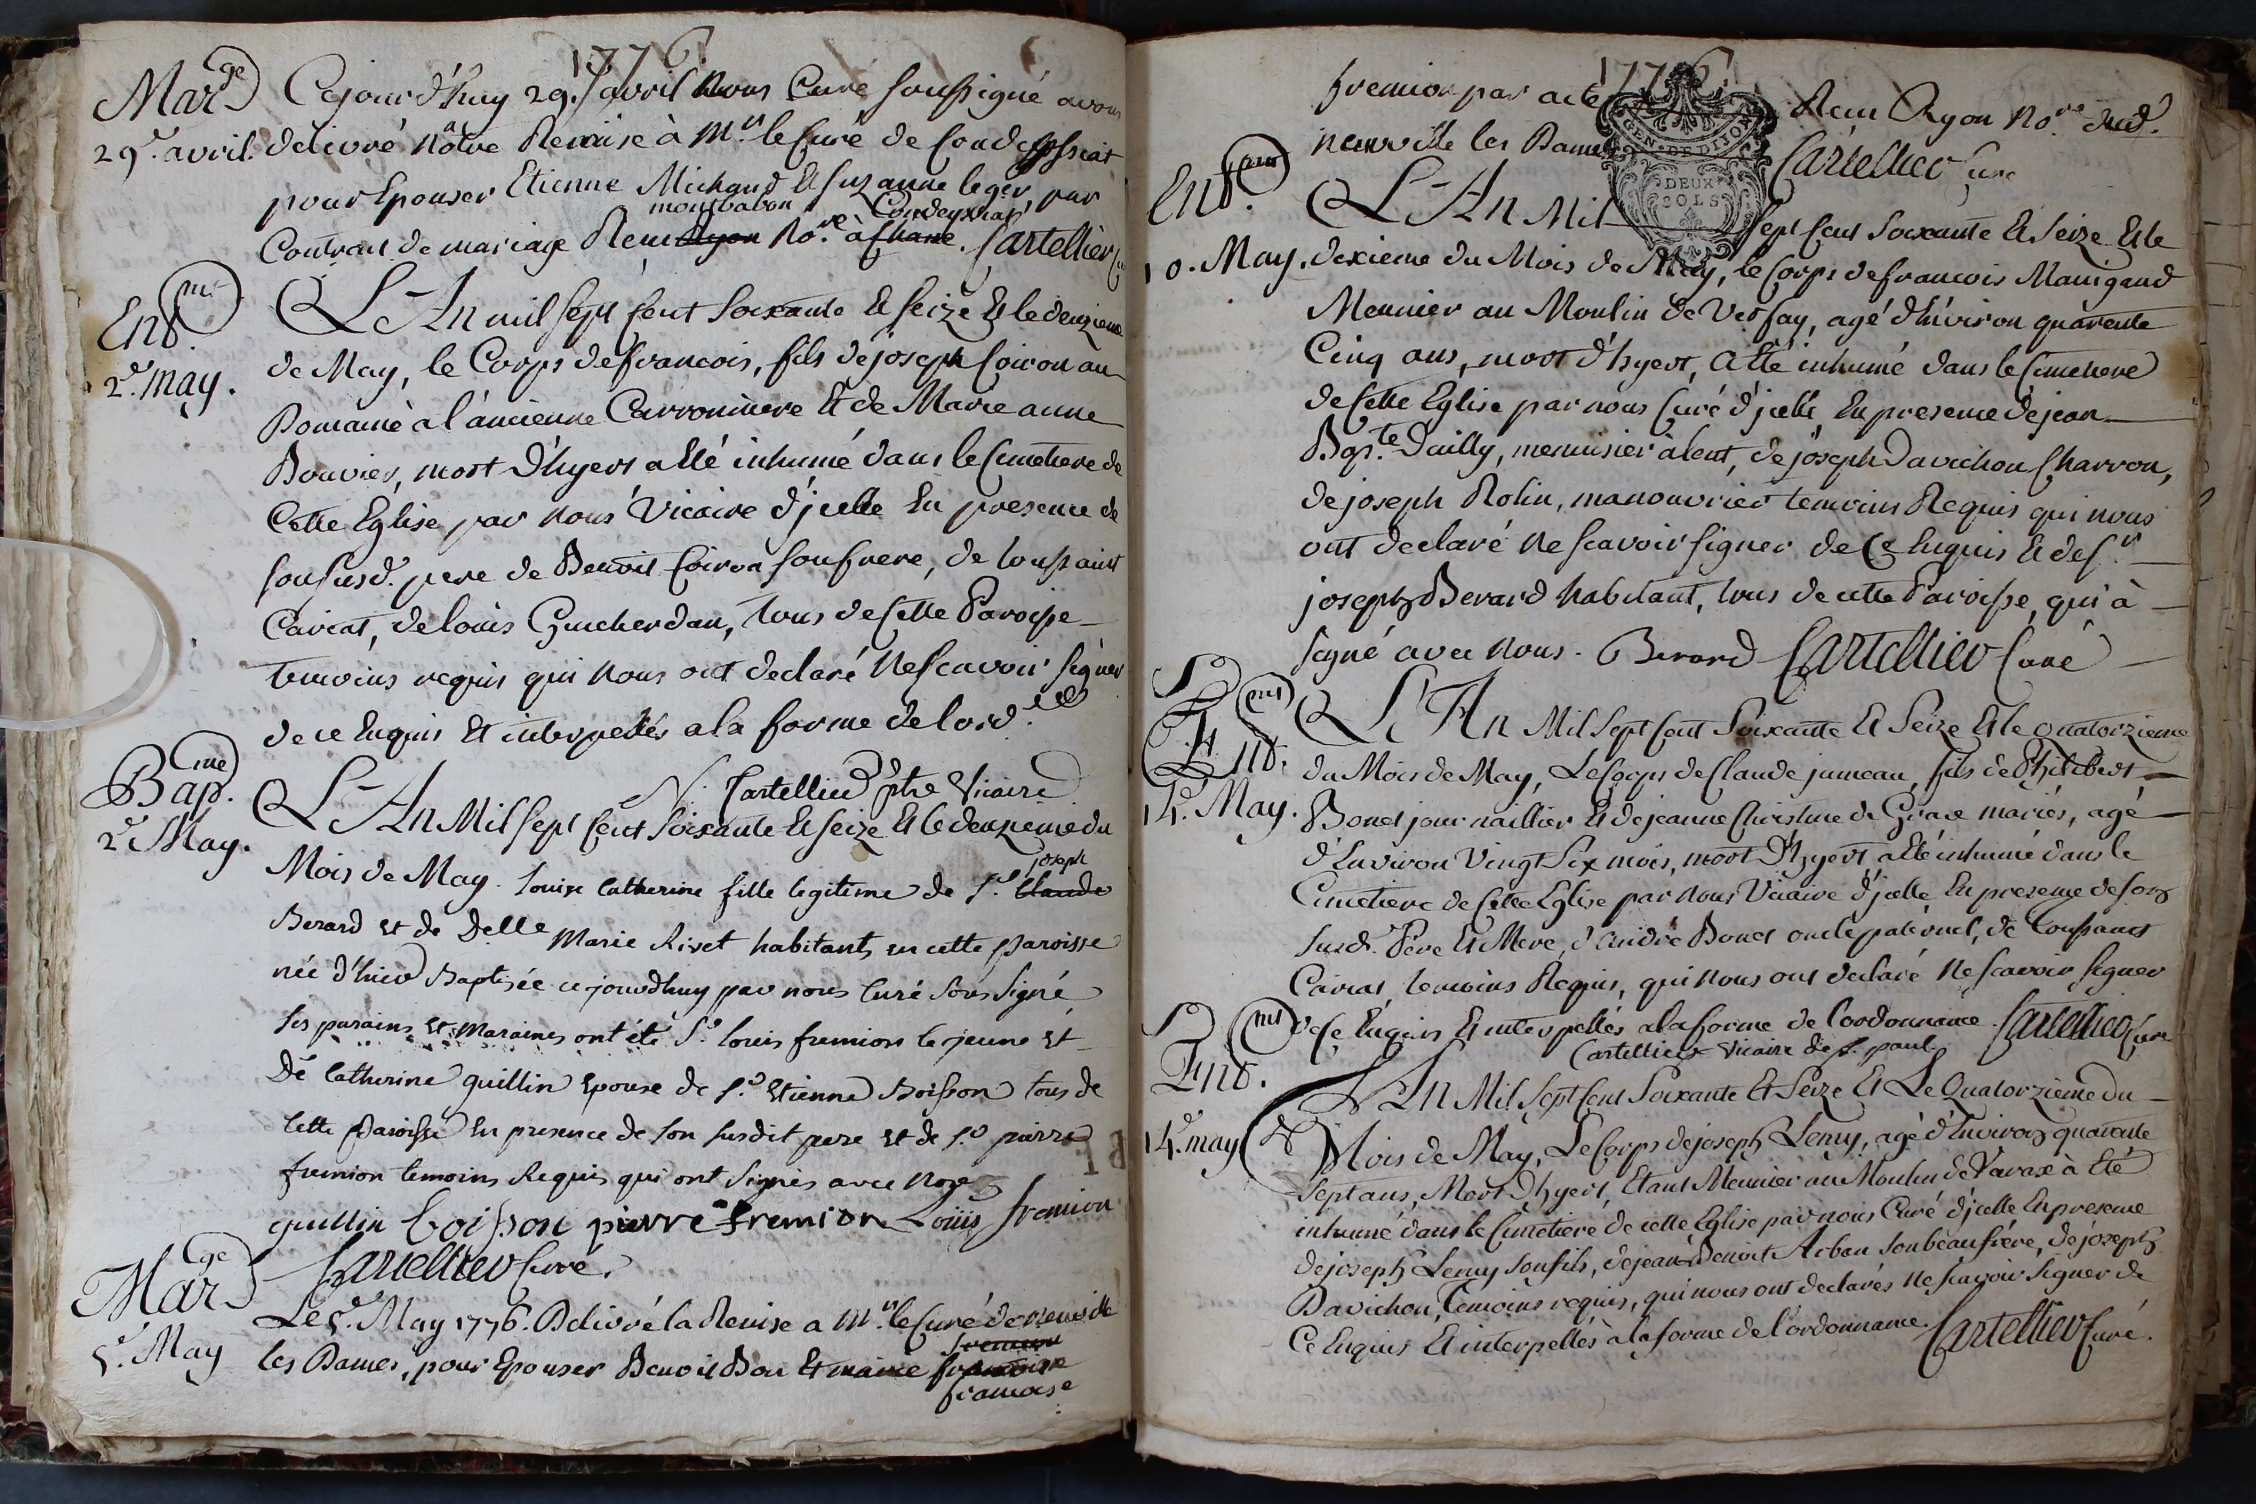 1776
Mar.ge Cejourd'huy 29. avril Nous Curé soussigné avons
29.e avril. delivré notre Remise à M.r le Curé de Condeyssiat
pour Epouser Etienne Michaud Et suzanne leger, par
monbabon Condeyssiat
Contrat de mariage Rem Ayon No.re à Chane. Cartellier
Ent.mt L'An mil sept Cent Soixante Et Seize Et le deuzieme
2.e may. de May, le Corps de francois, fils de joseph Coiron au
Domaine à l'ancienne Carroniere Et de Marie anne
Bouvier, mort D'hyert a Eté inhumé dans le Cimetiere de
Cette Eglise par nous Vicaire d'jcelle En presence de
son susd. pere de Benoit Coiron son frere, de toussaint
Cairat, de louis Guicherdan, tous de Cette Paroisse
temoins requis qui nous ont declaré Ne Scavoir signer
de ce Enquis Et interpellés a la forme de lord.ce
Cartellier ptre Vicaire
Bap.me L'An Mil sept Cent Soixante Et Seize Et le deuzieme du
2.e May. Mois de May. louise Catherine fille legitime de S.r Claude
joseph
Berard et de Delle Marie Rivet habitants en cette paroisse
née d'hier Baptisée cejourdhuy par nous Curé Sous Signé
ses parains et maraines ont été S.r louis fremion le jeune et
De Catherine guillin epouse de S.r Etienne Boisson tous de
Cette Paroisse En presence de son susdit pere et de S.r pierre
fremion temoins Requis qui ont Signés avec nous
guillin boisson pierre fremion Loüis fremion
Cartellier Curé.
Mar.ge Le 5.e May 1776. Delivré la Remise a M.r le Curé de neuville
5.e May les Dames, pour Epouser Benoit Bon Et marie francoise
fremion
francoise
1776
fremion par acte Rem Ayon No.re dud.
neuville les Dames Cartellier Curé
GEN. DE DIJON
DEUX SOLS
Ent.mt L'An Mil Sept Cent Soixante Et Seize Et le
10. May. dexieme du Mois de May, le Corps de francois Manigand
Meunier au Moulin de Vessay, agé d'hiviron quarente
Cinq ans, mort d'hyert, a Eté inhumé dans le Cimetiere
de Cette Eglise par nous Curé d'jcelle, En presence de jean
Bap.te Dailly, menuisier à lent, de joseph Davichon Charron,
de joseph Rolin, manouvrier temoins Requis qui nous
ont declaré Ne Scavoir signer de Ce Enquis Et de S.r
joseph Berard habitant, tous de cette Paroisse, qui à
signé avec Nous. Berard Cartellier Curé
Ent.mt L'An Mil Sept Cent Soixante Et Seize Et le quatorzieme
14. May. du Mois de May, Le Corps de Claude jumeau, fils de Philibert
Bonet journaillier Et de jeanne Christine de Grace mariés, agé
d'Environ Vingt Six mois, mort D'hyert a Eté inhumé dans le
Cimetiere de Cette Eglise par Nous Vicaire d'jcelle En presence de son
susd. Pere Et Mere, d'andré Bonet oncle paternel, de toussaint
Cairat, temoins Requis, qui nous ont declaré Ne Scavoir signer
de Ce Enquis Et interpellés a la forme de l'ordonnance. Cartellier Curé
Cartellier Vicaire de S. paul.
Ent.mt L'An Mil Sept Cent Soixante Et Seize Et Le Quatorzieme du
14. may Mois de May, Le Corps de joseph Leny, agé d'Environ quarante
sept ans, Mort D'hyert, Etant Meunier au Moulin de Vavax à Eté
inhumé dans le Cimetiere de cette Eglise par nous Curé d'jcelle En presence
de joseph Leny son fils, de jean Benoit Arban son beau frére, de joseph
Davichon, Temoins requis, qui nous ont declarés Ne scavoir Signer de
Ce Enquis Et interpellés à la forme de l'ordonnance. Cartellier Curé.